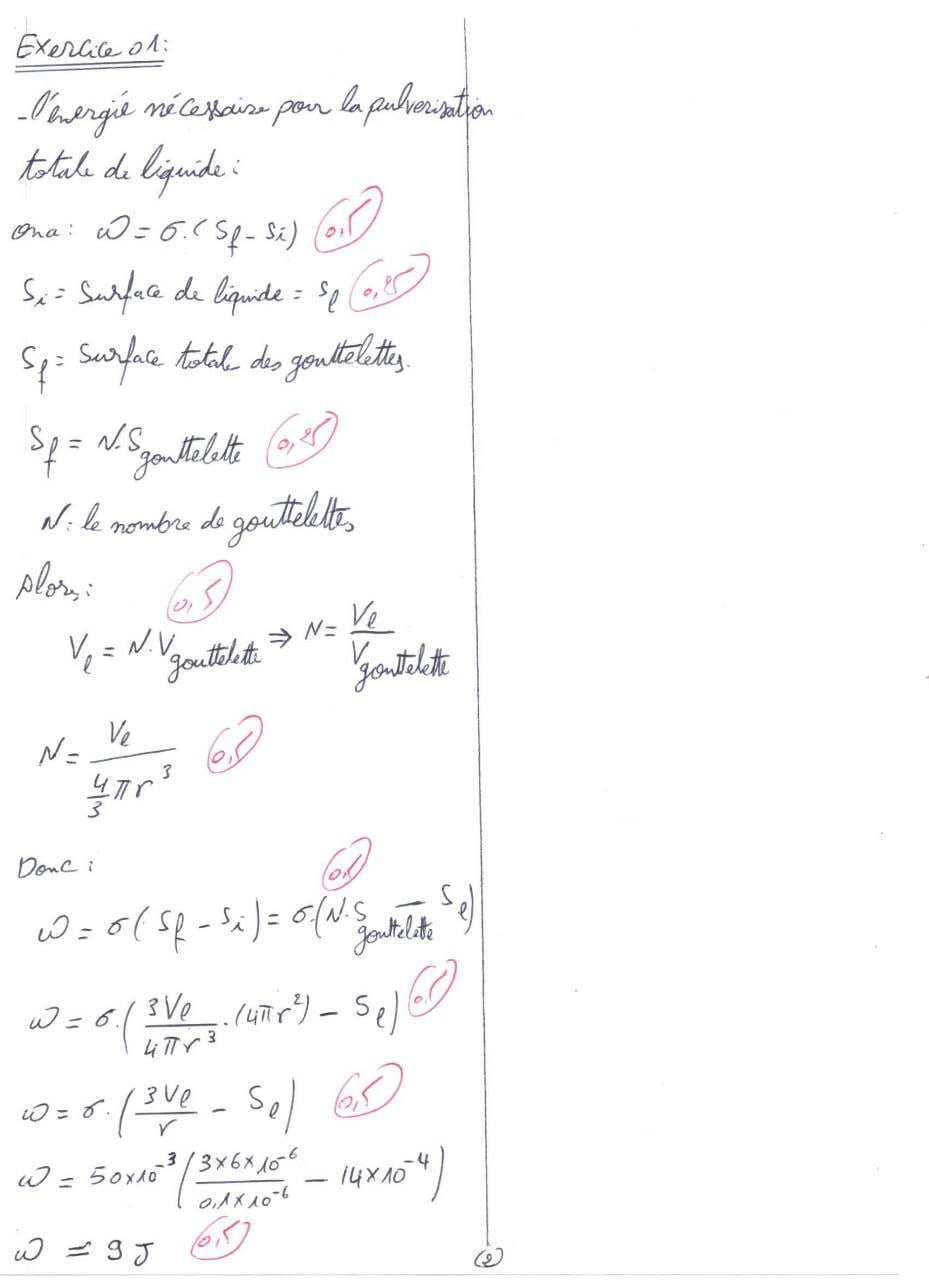 Exercice 01:
-l'énergie nécessaire pour la pulverisation
totale de liquide :
ona: ω = σ.(Sf - Si) 0,5
Si = Surface de liquide = Sl 0,25
Sf = Surface totale des gouttelettes.
Sf = N.Sgouttelette 0,25
N: le nombre de gouttelettes
Alors: 0,5
Vl = N.Vgouttelette ⇒ N = Vl / Vgouttelette
N = Vl / (4/3 π r³) 0,5
Donc : 0,5
ω = σ(Sf - Si) = σ.(N.Sgouttelette - Sl)
ω = σ.(3Vl / 4πr³ . (4πr²) - Sl) 0,5
ω = σ.(3Vl / r - Sl) 0,5
ω = 50×10⁻³ (3×6×10⁻⁶ / 0,1×10⁻⁶ - 14×10⁻⁴)
ω = 9 J 0,5
(2)